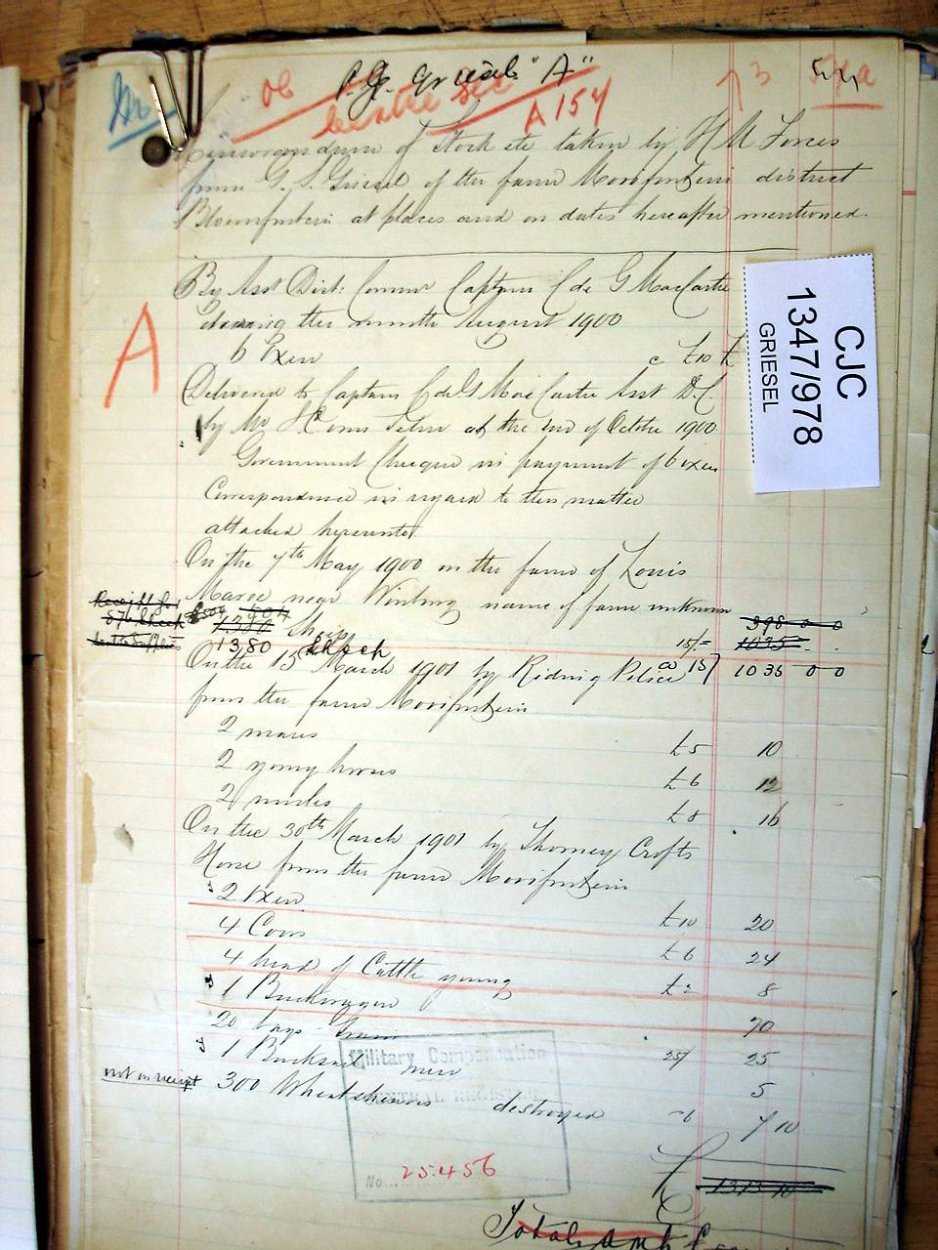 P.J. Griesel "A"
A 154
Memorandum of Stock etc taken by H M Forces
from G. S. Griesel of the farm Mooifontein district
Bloemfontein at places and on dates hereafter mentioned.
By Asst Dist: Commr Captain C de G MacCartie
during the month August 1900
6 Oxen @ £10 £
CJC
1347/978
GRIESEL
A
Delivered to Captain C de G MacCartie Asst D.C.
by Mr at the end of October 1900
Government Cheque in payment of 6 oxen
Correspondence in regard to this matter
attached hereunto
On the 7th May 1900 on the farm of Louis
Maree near Winburg name of farm unknown
Receipt for 398 0 0
Sheep 15/- 1035
1380 Sheep @ 15/ 1035 0 0
On the 15 March 1901 by Riding Police
from the farm Mooifontein
2 mares £5 10
2 young horses £6 12
2 mules £8 16
On the 30th March 1901 by Thorney Crofts
Horse from the farm Mooifontein
2 Oxen £10 20
4 Cows £6 24
4 head of Cattle young £2 8
1 Buckwagon 70
20 bags 25/ 25
1 Bucksail new 5
not on receipt 300 destroyed 6 7 10
Military Compensation
CENTRAL REGISTRY
No 25456
£ 1313 10
Total amt £